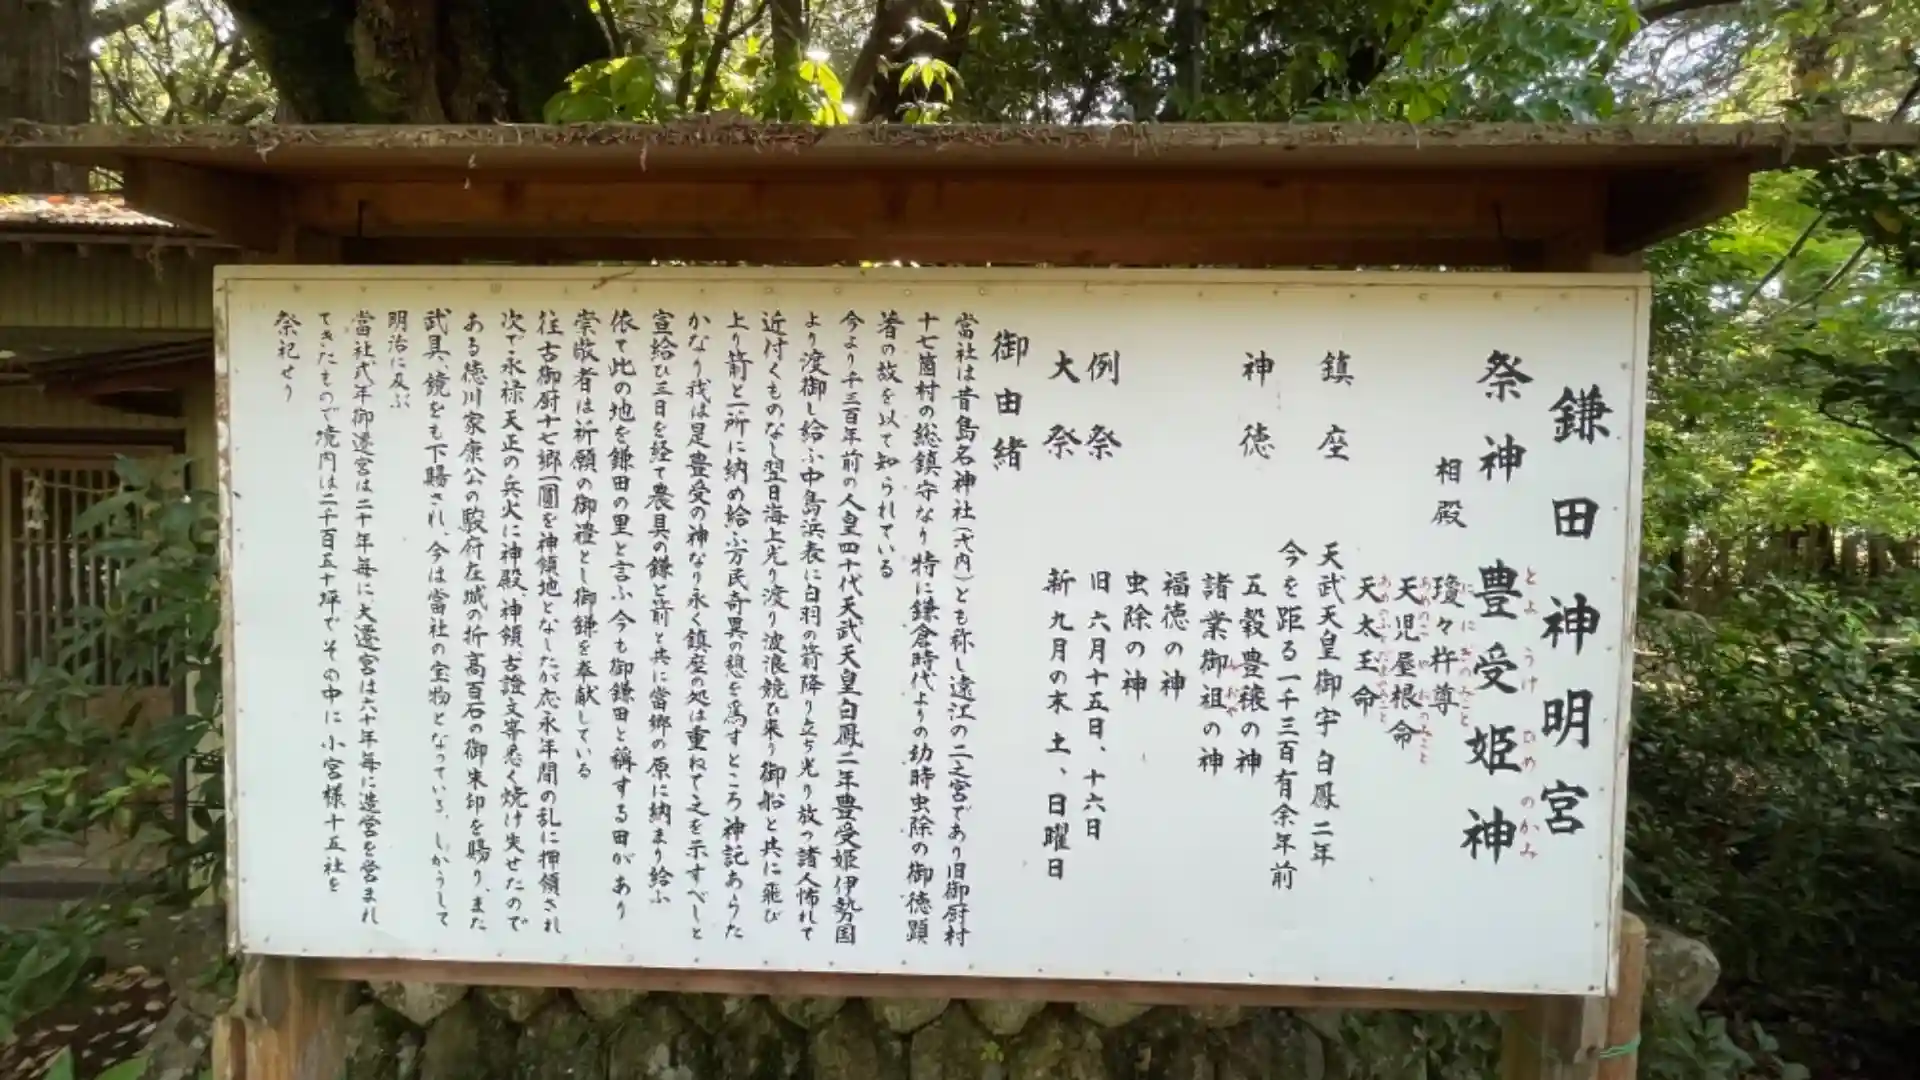 鎌田神明宮
祭神 豊受姫神
とようけひめのかみ
相殿 瓊々杵尊
ににぎのみこと
天児屋根命
あめのこやねのみこと
天太玉命
あめのふとだまのみこと
鎮座 天武天皇御宇白鳳二年
今を距る一千三百有余年前
神徳 五穀豊穣の神
諸業御祖の神
みおや
福徳の神
虫除の神
例祭 旧六月十五日、十六日
大祭 新九月の末土、日曜日
御由緒
當社は昔島名神社(式内)とも称し遠江の二之宮であり旧御厨村
十七箇村の総鎮守なり特に鎌倉時代よりの幼時虫除の御徳顕
著の故を以て知られている
今より千三百年前の人皇四十代天武天皇白鳳二年豊受姫伊勢国
より渡御し給ふ中島浜表に白羽の箭降り立ち光り放つ諸人怖れて
近付くものなし翌日海上光り渡り波浪競ひ来り御船と共に飛び
上り箭と一所に納め給ふ万民奇異の憩を為すところ神託あらた
かなり我は是豊受の神なり永く鎮座の処は重ねて之を示すべしと
宣給ひ三日を経て農具の鎌と箭と共に當郷の原に納まり給ふ
依て此の地を鎌田の里と言ふ今も御鎌田と稱する田があり
崇敬者は祈願の御禮とし御鎌を奉献している
往古御厨十七郷一圓を神領地となしたが応永年間の乱に押領され
次で永禄天正の兵火に神殿神領古證文等悉く焼け失せたので
ある徳川家康公の駿府在城の折高百石の御朱印を賜り、また
武具、鏡をも下賜され、今は當社の宝物となっている。しかうして
明治に及ぶ
當社式年御遷宮は二十年毎に大遷宮は六十年毎に造営を営まれ
てきたもので境内は二千百五十坪でその中に小宮様十五社を
祭祀せり